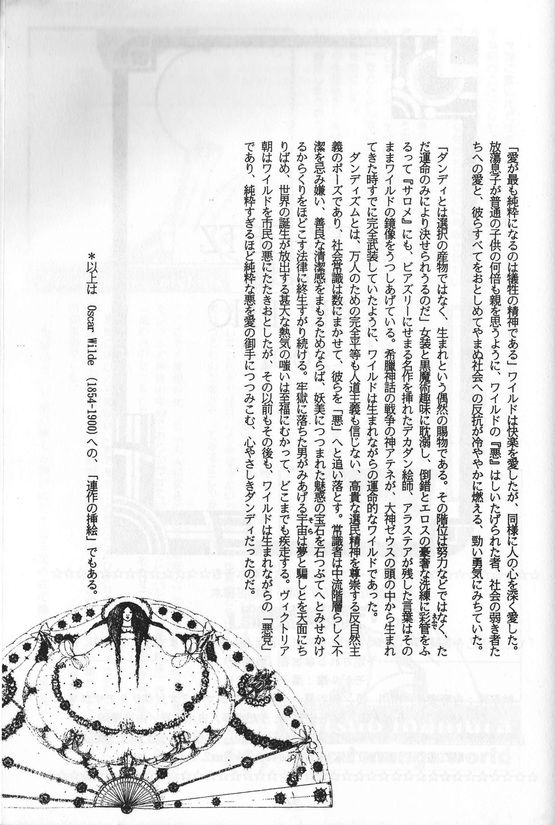 「愛が最も純粋になるのは犠牲の精神である」ワイルドは快楽を愛したが、同様に人の心を深く愛した。
放蕩息子が普通の子供の何倍も親を思うように、ワイルドの『悪』はしいたげられた者、社会の弱き者た
ちへの愛と、彼らすべてをおとしめてやまぬ社会への反抗が冷ややかに燃える、勁い勇気にみちていた。
「ダンディとは選択の産物ではなく、生まれという偶然の賜物である。その階位は努力などではなく、た
だ運命のみにより決せられうるのだ」女装と黒魔術趣味に耽溺し、倒錯とエロスの豪奢な洗練に彩管をふ
るって『サロメ』にも、ビアズリーにせまる名作を挿れたデカダン絵師、アラステアが残した言葉はその
ままワイルドの鏡像をうつしあげている。希臘神話の戦争の神アテネが、大神ゼウスの頭の中から生まれ
てきた時すでに完全武装していたように、ワイルドは生まれながらの運命的なワイルドであった。
ダンディズムとは、万人のための完全平等も人道主義も信じない、高貴な選民精神を尊崇する反自然主
義のポーズであり、社会常識は数にまかせて、彼らを「悪」へと追い落とす。常識者は中流階層らしく不
潔を忌み嫌い、善良な清潔感をまもるためならば、妖美につつまれた魅惑の宝石を石つぶてへとみせかけ
るからくりをほどこす法律に終生すがり続ける。牢獄に落ちた男がみあげる宇宙は夢と騙しとを天面にち
りばめ、世界の誕生が放出する甚大な熱気の嗤いは至福にむかって、どこまでも疾走する。ヴィクトリア
朝はワイルドを市民の悪にたたきおとしたが、その以前もその後も、ワイルドは生まれながらの「悪党」
であり、純粋すぎるほど純粋な悪を愛の御手につつみこむ、心やさしきダンディだったのだ。
＊以上は Oscar Wilde (1854-1900) への、「連作の挿絵」でもある。